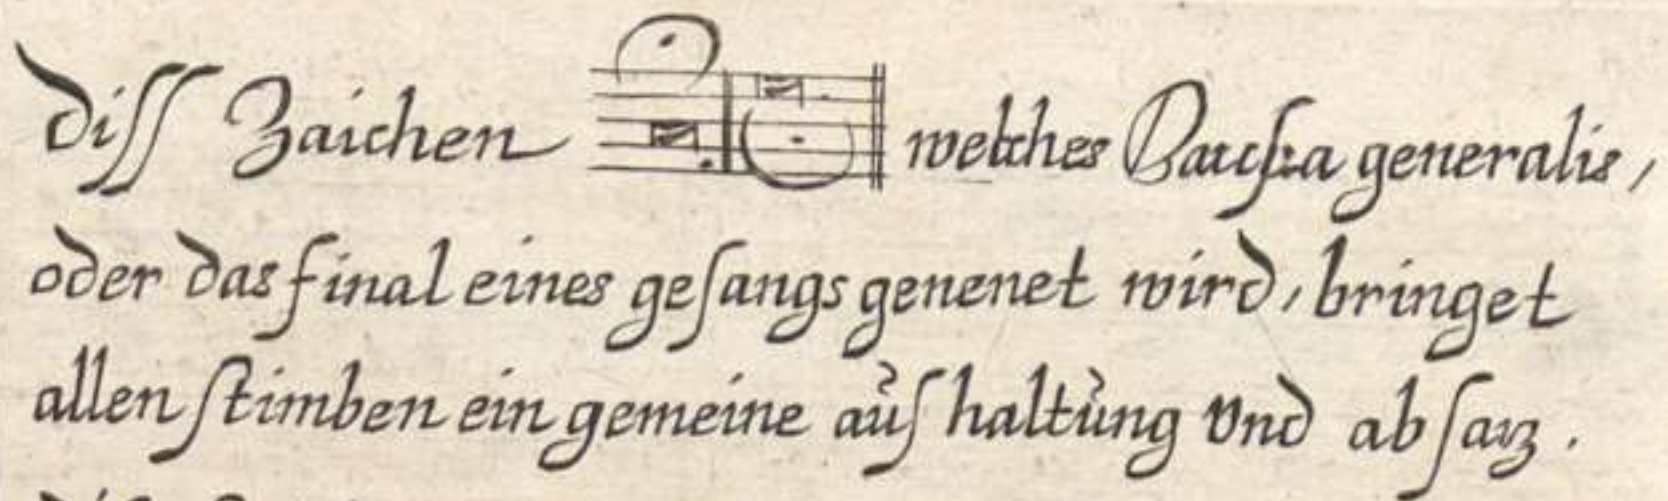 diſſ Zaichen welches Pauſsa generalis,
oder das final eines geſangs genenet wird, bringet
allen ſtimben ein gemeine auſ haltung vnd ab ſaz.